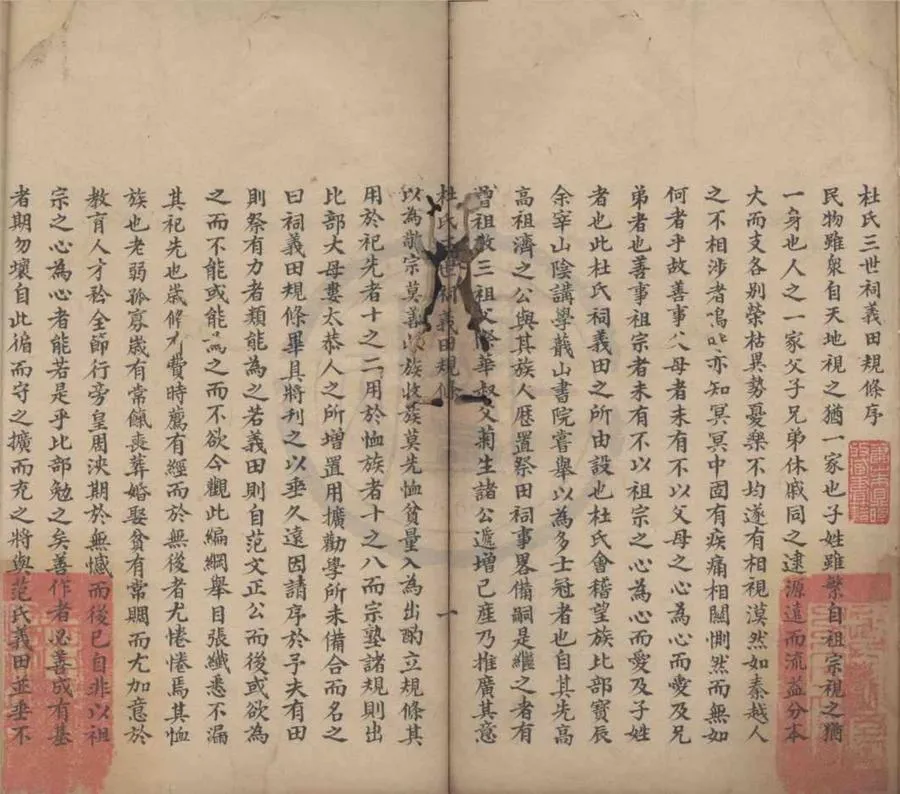 杜氏三世祠義田規條序
民物雖衆自天地視之猶一家也子姓雖繁自祖宗視之猶
一身也人之一家父子兄弟休戚同之逮源遠而流益分本
大而支各別榮枯異勢憂樂不均遂有相視漠然如秦越人
之不相涉者嗚呼亦知冥冥中固有疾痛相關惻然而無如
何者乎故善事父母者未有不以父母之心為心而愛及兄
弟者也善事祖宗者未有不以祖宗之心為心而愛及子姓
者也此杜氏祠義田之所由設也杜氏會稽望族比部寶辰
余宰山陰講學蕺山書院嘗舉以為多士冠者也自其先高
高祖濟之公與其族人歷置祭田祠事畧備嗣是繼之者有
曾祖敩三祖父際華叔父菊生諸公遞增己產乃推廣其意
杜氏三世祠義田規條
一
以為敬宗莫善收族收族莫先恤貧量入為出酌立規條其
用於祀先者十之二用於恤族者十之八而宗塾諸規則出
比部大母婁太恭人之所增置用擴勸學所未備合而名之
曰祠義田規條畢具將刊之以垂久遠因請序於予夫有田
則祭有力者類能為之若義田則自范文正公而後或欲為
之而不能或能為之而不欲今觀此編綱舉目張纖悉不漏
其祀先也歲修有費時薦有經而於無後者尤惓惓焉其恤
族也老弱孤寡歲有常餼喪葬婚娶貧有常賙而尤加意於
教育人才矜全節行旁皇周浹期於無憾而後已自非以祖
宗之心為心者能若是乎比部勉之矣善作者必善成有基
者期勿壞自此循而守之擴而充之將與范氏義田並垂不